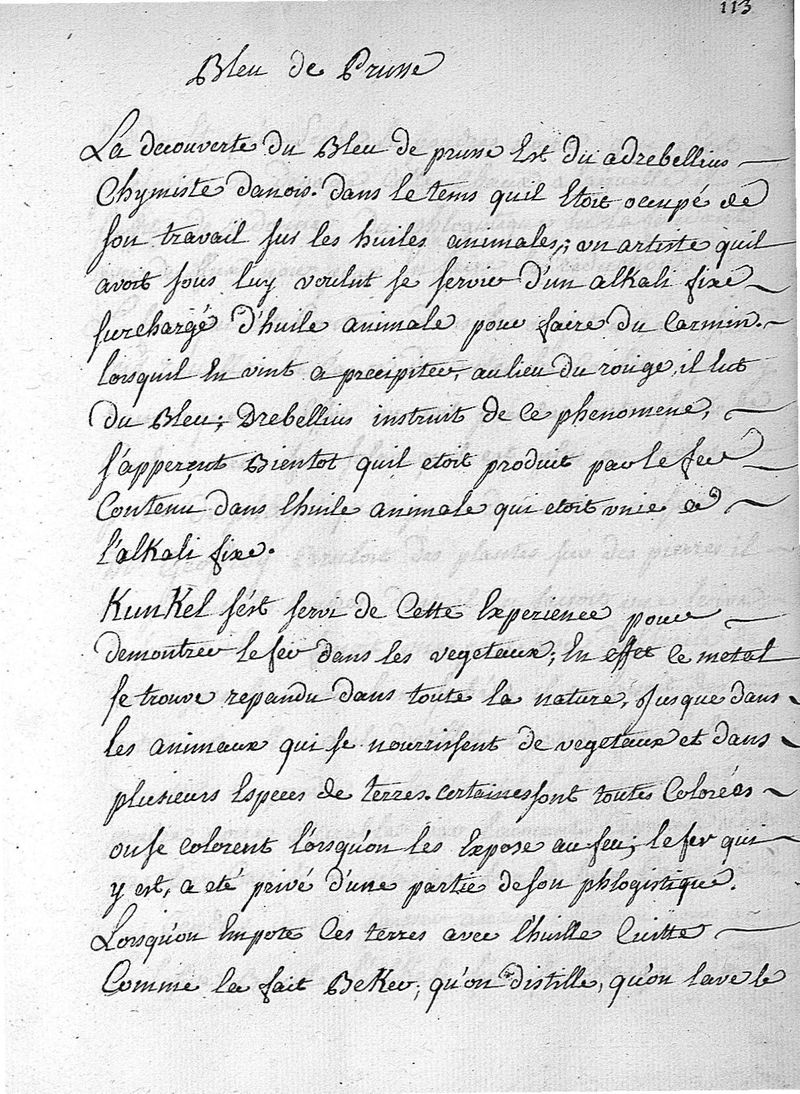 113
Bleu de Prusse
La decouverte du Bleu de prusse Est du a drebellius
Chymiste danois. dans le tems quil Etoit occupé de
son travail sur les huiles animales,; un artiste quil
avoit sous luy voulut se servir d'un alkali fixe
surchargé d'huile animale pour faire du Carmin.
lorsquil En vint a precipiter, au lieu du rouge, il Eut
du Bleu; Drebellius instruit de Ce phenomene,
s'apperçut Bientot quil etoit produit par le fer
Contenu dans l'huile animale qui etoit unie a
l'alkali fixe.
KunKel s'est servi de Cette Experience pour
demontrer le fer dans les vegetaux; En effet Ce metal
se trouve repandu dans toute la nature, Jusque dans
les animaux qui se nourrissent de vegetaux et dans
plusieurs Especes de terres. certaines sont toutes Colorées
ou se colorent lorsqu'on les Expose au feu; le fer qui
y est, a eté privé d'une partie de son phlogistique.
Lorsqu'on Empote Ces terres avec l'huille Cuitte
Comme la fait BeKer, qu'on distille, qu'on lave le